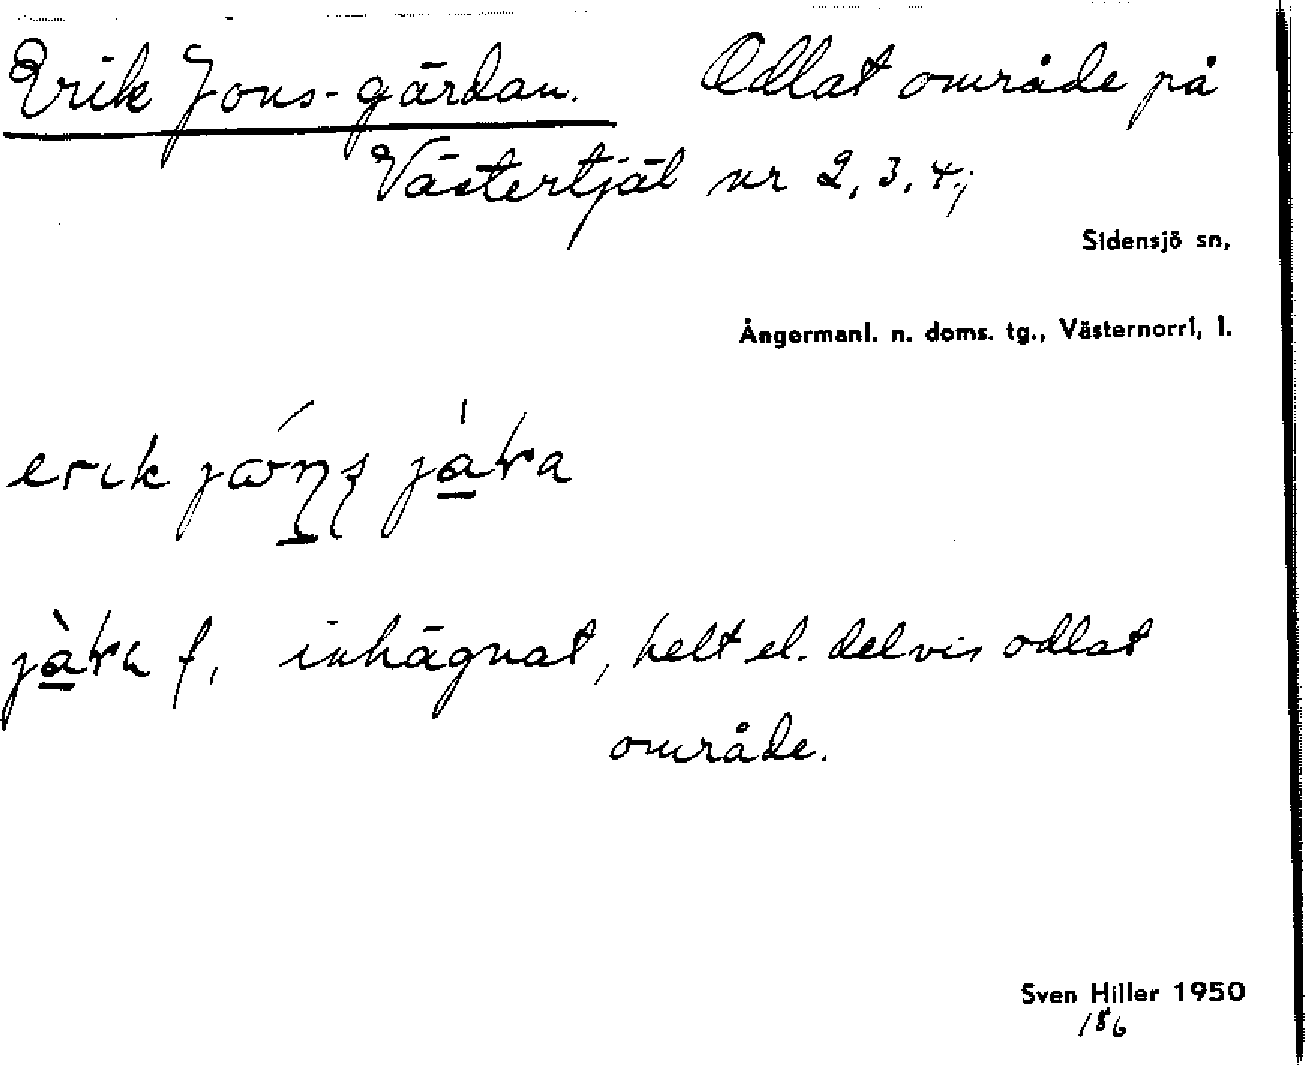 Erik Jons-gärdan. Odlat område på
Västertjäl nr 2, 3, 4;
Sidensjö sn,
Ångermanl. n. doms. tg., Västernorrl, l.
erik
f, inhägnat, helt el. delvis odlat
område.
Sven Hiller 1950
186